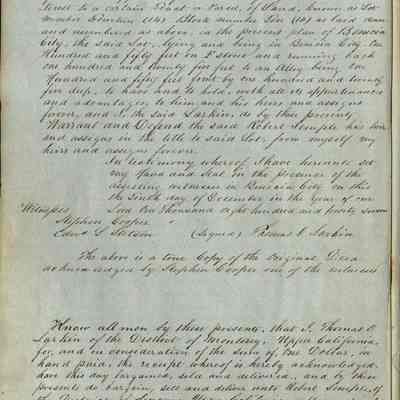 Israel to a certain Point or Parcel, of Land, known as Lot
Number Fourteen (14) Block number Ten (10) as laid down
and numbered as above, in the present plan of Benicia
City, the said Lot, lying and being in Benicia City, One
Hundred and fifty feet on F street and running back
One hundred and twenty five feet to an Alley being, One
Hundred and fifty feet front by One hundred and twenty
five deep, to have and to hold, with all its appurtenances
and advantages, to him and his heirs and assigns
forever, and I, the said Larkin, do by these presents
Warrant and Defend the said Robert Semple his heirs
and assigns in the title to said Lot, from myself my
heirs and assigns forever.
In testimony whereof I have hereunto set
my Hand and Seal in the presence of the
assisting witnesses in Benicia City on this
the Tenth day of December in the Year of our
Lord One Thousand eight hundred and forty seven
Witnesses
Stephen Cooper "
Edwd L Stetson (Signed) Thomas O. Larkin
The above is a true Copy of the Original Deed
acknowledged by Stephen Cooper one of the witnesses
Know all men by these presents, that I, Thomas O.
Larkin of the District of Monterey, Upper California,
for, and in consideration of the sum of One Dollar, in
hand paid, the receipt whereof is hereby acknowledged,
have this day bargained, sold and delivered, and by these
presents do bargain, sell and deliver unto Robert Semple, of